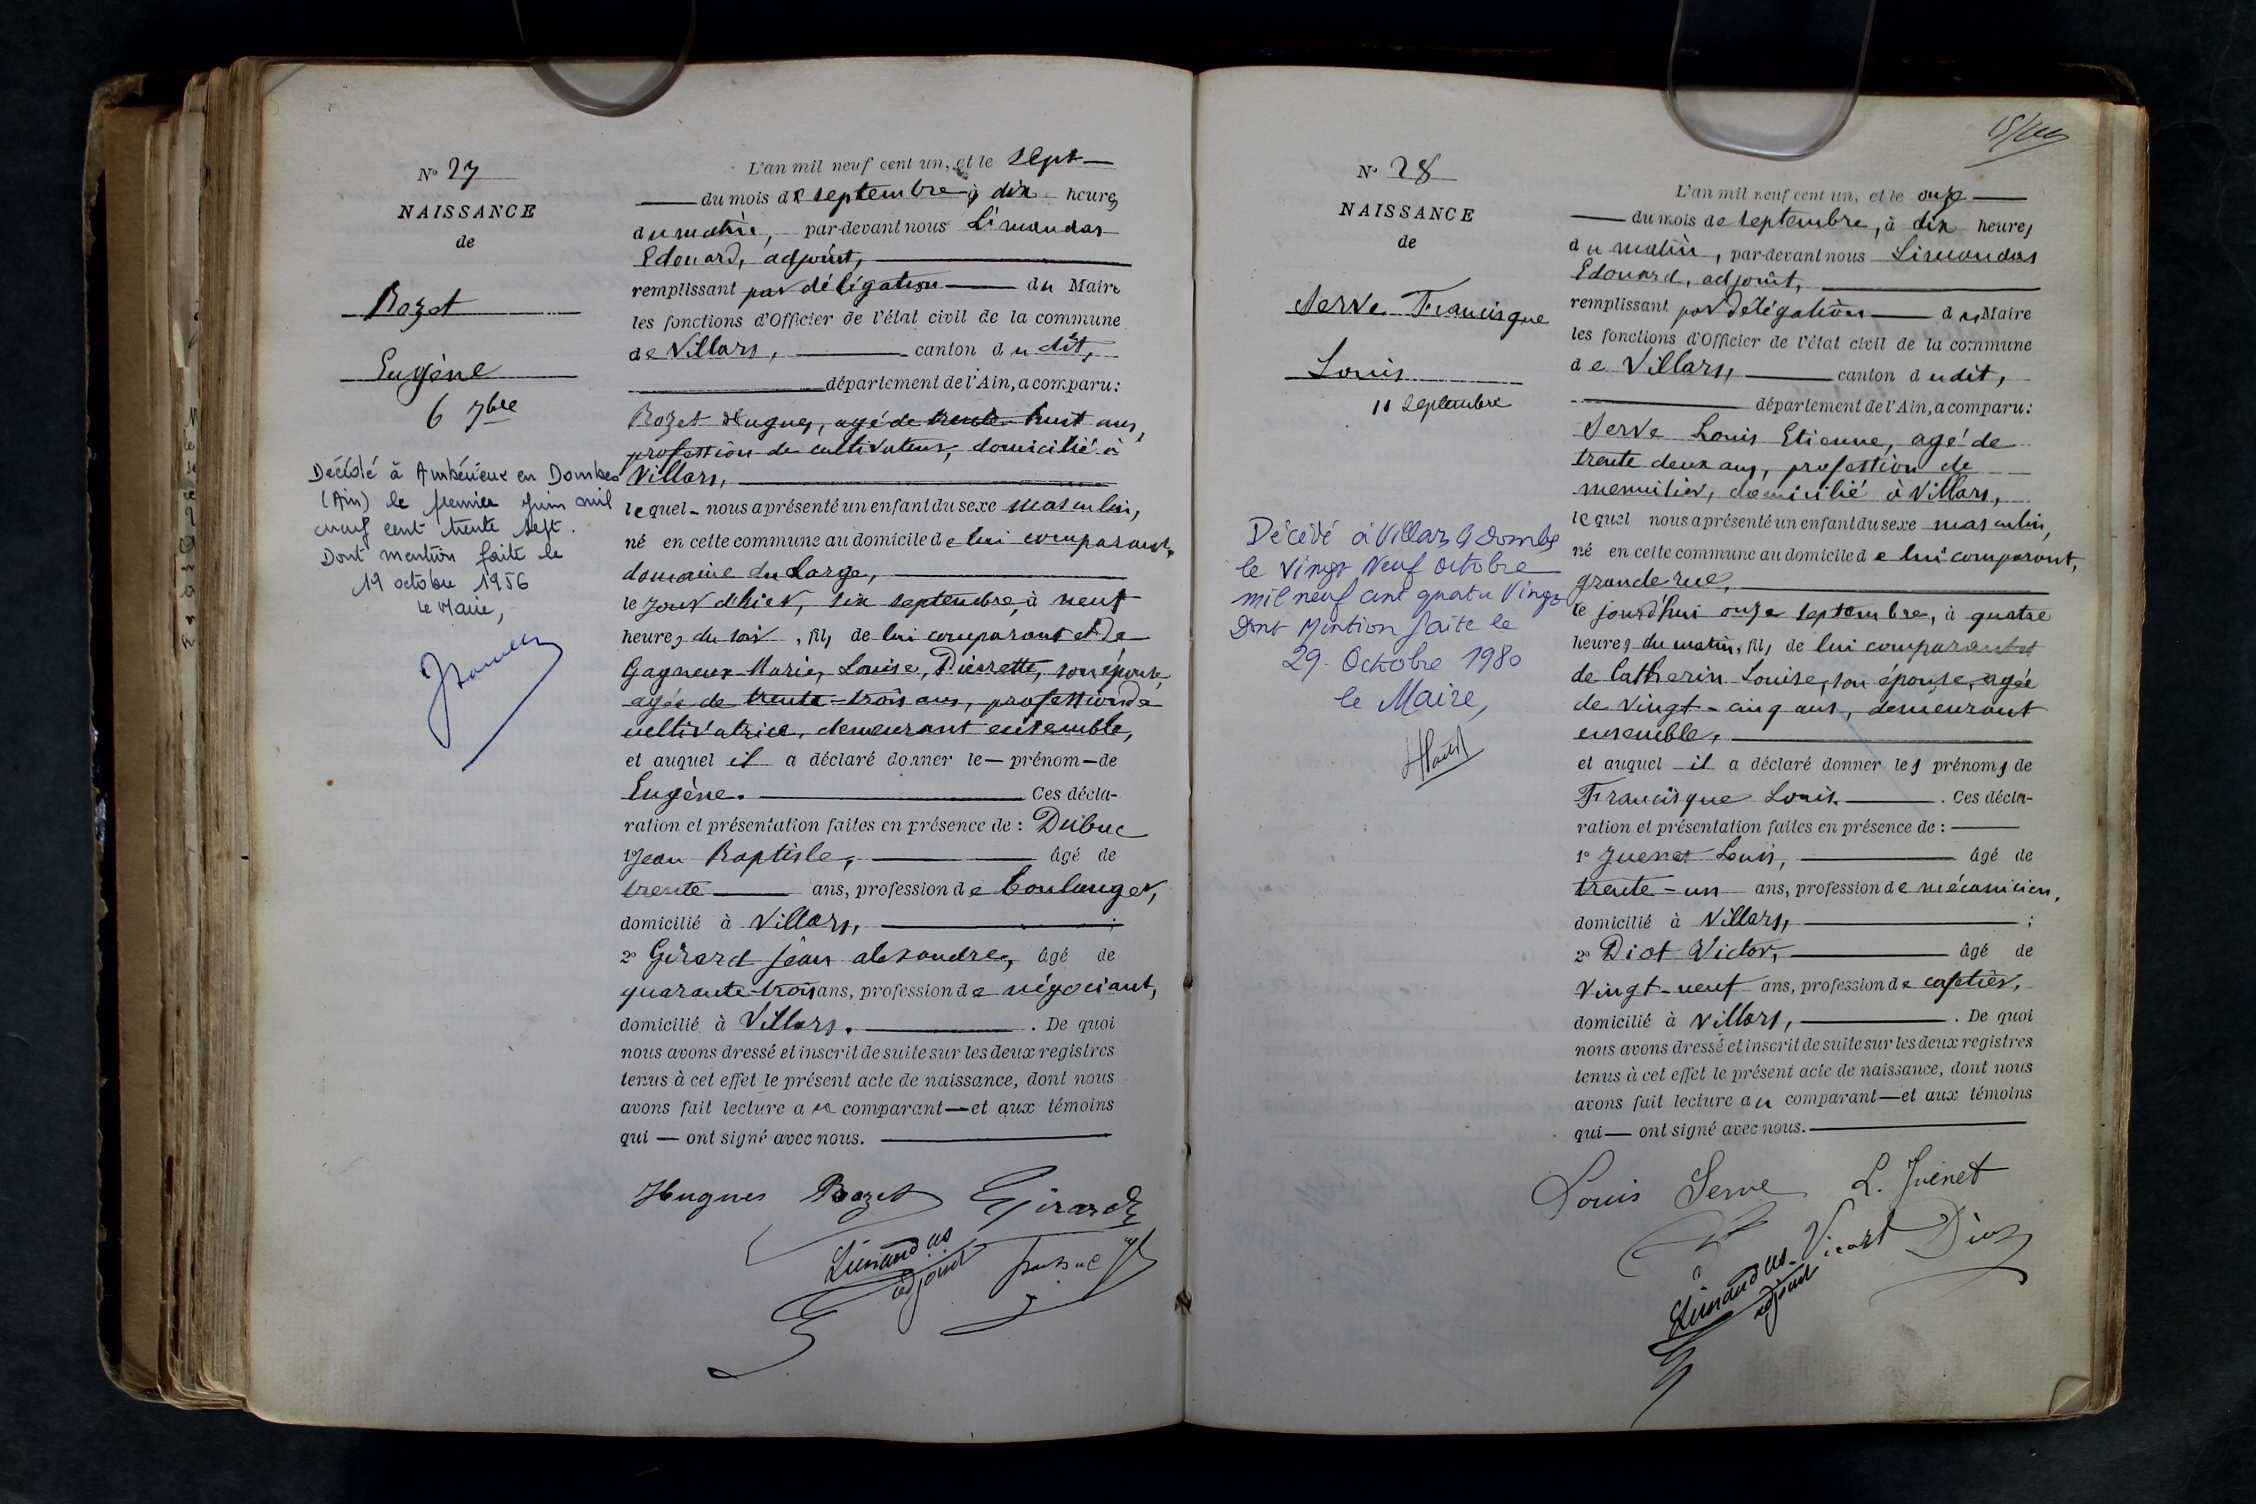 N° 27
NAISSANCE
de
Rozet
Eugène
6 7bre
Décédé à Ambérieux en Dombes
(Ain) le premier juin mil
neuf cent trente sept.
Dont mention faite le
19 octobre 1956
Le Maire,
L'an mil neuf cent un, et le sept
du mois de septembre à dix heures
du matin, par-devant nous Limandas
Edouard, adjoint,
remplissant par délégation du Maire
les fonctions d'Officier de l'état civil de la commune
de Villars, canton du dit,
département de l'Ain, a comparu:
Rozet Hugues, agé de trente-huit ans,
profession de cultivateur, domicilié à
Villars,
lequel nous a présenté un enfant du sexe masculin,
né en cette commune au domicile de lui comparant,
domaine du Large,
le jour d'hier, six septembre, à neuf
heures du soir, fils de lui comparant et de
Gagneux Marie, Louise, Pierrette, son épouse,
agée de trente-trois ans, profession de
cultivatrice, demeurant ensemble,
et auquel il a déclaré donner le prénom de
Eugène. Ces décla-
ration et présentation faites en présence de: Dubuc
1° Jean Baptiste, âgé de
trente ans, profession de boulanger,
domicilié à Villars, ;
2° Girard Jean alexandre, âgé de
quarante-trois ans, profession de négociant,
domicilié à Villars. . De quoi
nous avons dressé et inscrit de suite sur les deux registres
tenus à cet effet le présent acte de naissance, dont nous
avons fait lecture au comparant et aux témoins
qui ont signé avec nous.
Hugues Rozet Girard
Limandas
adjoint
N° 28
NAISSANCE
de
Serve Francisque
Louis
11 septembre
Décédé à Villars les Dombes
le Vingt Neuf Octobre
mil neuf cent quatre Vingt
Dont Mention faite le
29 Octobre 1980
le Maire,
L'an mil neuf cent un, et le onze
du mois de septembre, à dix heures
du matin, par-devant nous Limandas
Edouard, adjoint,
remplissant par délégation du Maire
les fonctions d'Officier de l'état civil de la commune
de Villars, canton dudit,
département de l'Ain, a comparu:
Serve Louis Etienne, agé de
trente deux ans, profession de
menuisier, domicilié à Villars,
lequel nous a présenté un enfant du sexe masculin,
né en cette commune au domicile de lui comparant,
grande rue,
le jourd'hui onze septembre, à quatre
heures du matin, fils de lui comparant et
de Catherin Louise, son épouse, agée
de vingt-cinq ans, demeurant
ensemble,
et auquel il a déclaré donner les prénoms de
Francisque Louis. Ces décla-
ration et présentation faites en présence de:
1° Juenet Louis, âgé de
trente-un ans, profession de mécanicien,
domicilié à Villars, ;
2° Diot Victor, âgé de
vingt-neuf ans, profession de cafetier,
domicilié à Villars, . De quoi
nous avons dressé et inscrit de suite sur les deux registres
tenus à cet effet le présent acte de naissance, dont nous
avons fait lecture au comparant et aux témoins
qui ont signé avec nous.
Louis Serve L. Juenet
Limandas
adjoint